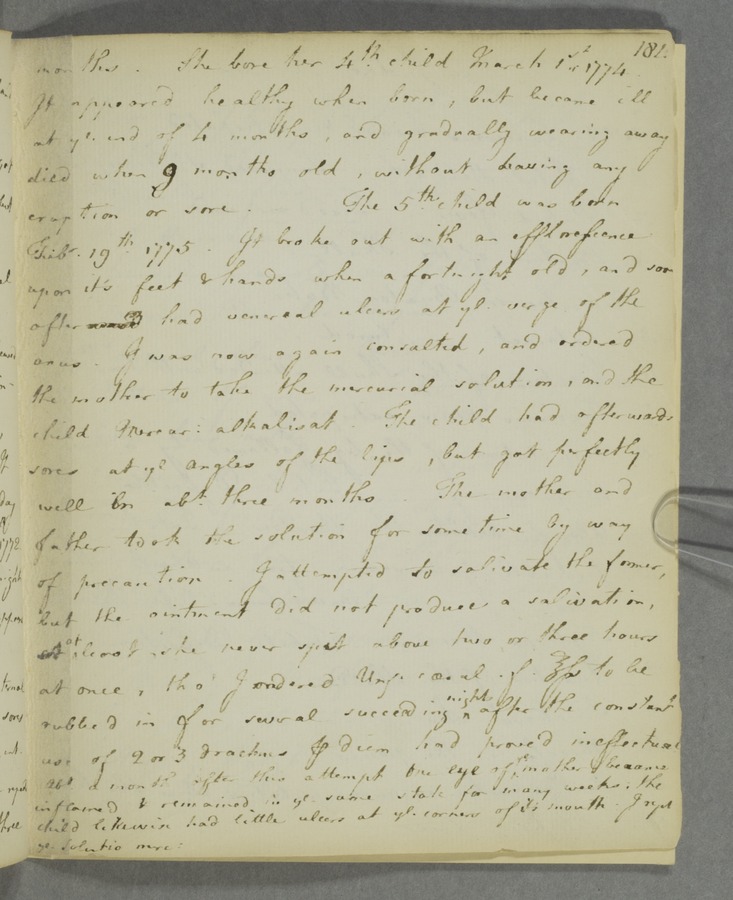 181.
months. She bore her 4th child March 1st 1774.
It appeared healthy when born, but became ill
at ye. end of 4 months, and gradually wearing away
died when 9 months old, without having any
eruption or sore. The 5th child was born
Febr. 19th 1775. It broke out with an efflorescence
upon it's feet & hands when a fortnight old, and soon
after had venereal ulcers at ye. verge of the
anus. I was now again consulted, and ordered
the mother to take the mercurial solution, and the
child Mercur: alkalisat. The child had afterwards
sores at ye angles of the lips, but got perfectly
well in abt. three months. The mother and
father took the solution for some time by way
of precaution. I attempted to salivate the former,
but the ointment did not produce a salivation,
at least she never spit above two or three hours
at once, tho' I ordered Ung. cærul. f. ℥ss to be
rubbed in for several succeeding nights after the constant
use of 2 or 3 drachms p diem had proved ineffectual
Abt a month after this attempt one eye of ye mother became
inflamed & remained in ye. same state for many weeks. The
child likewise had little ulcers at ye. corners of its mouth. I rept
ye. Solutio merc: